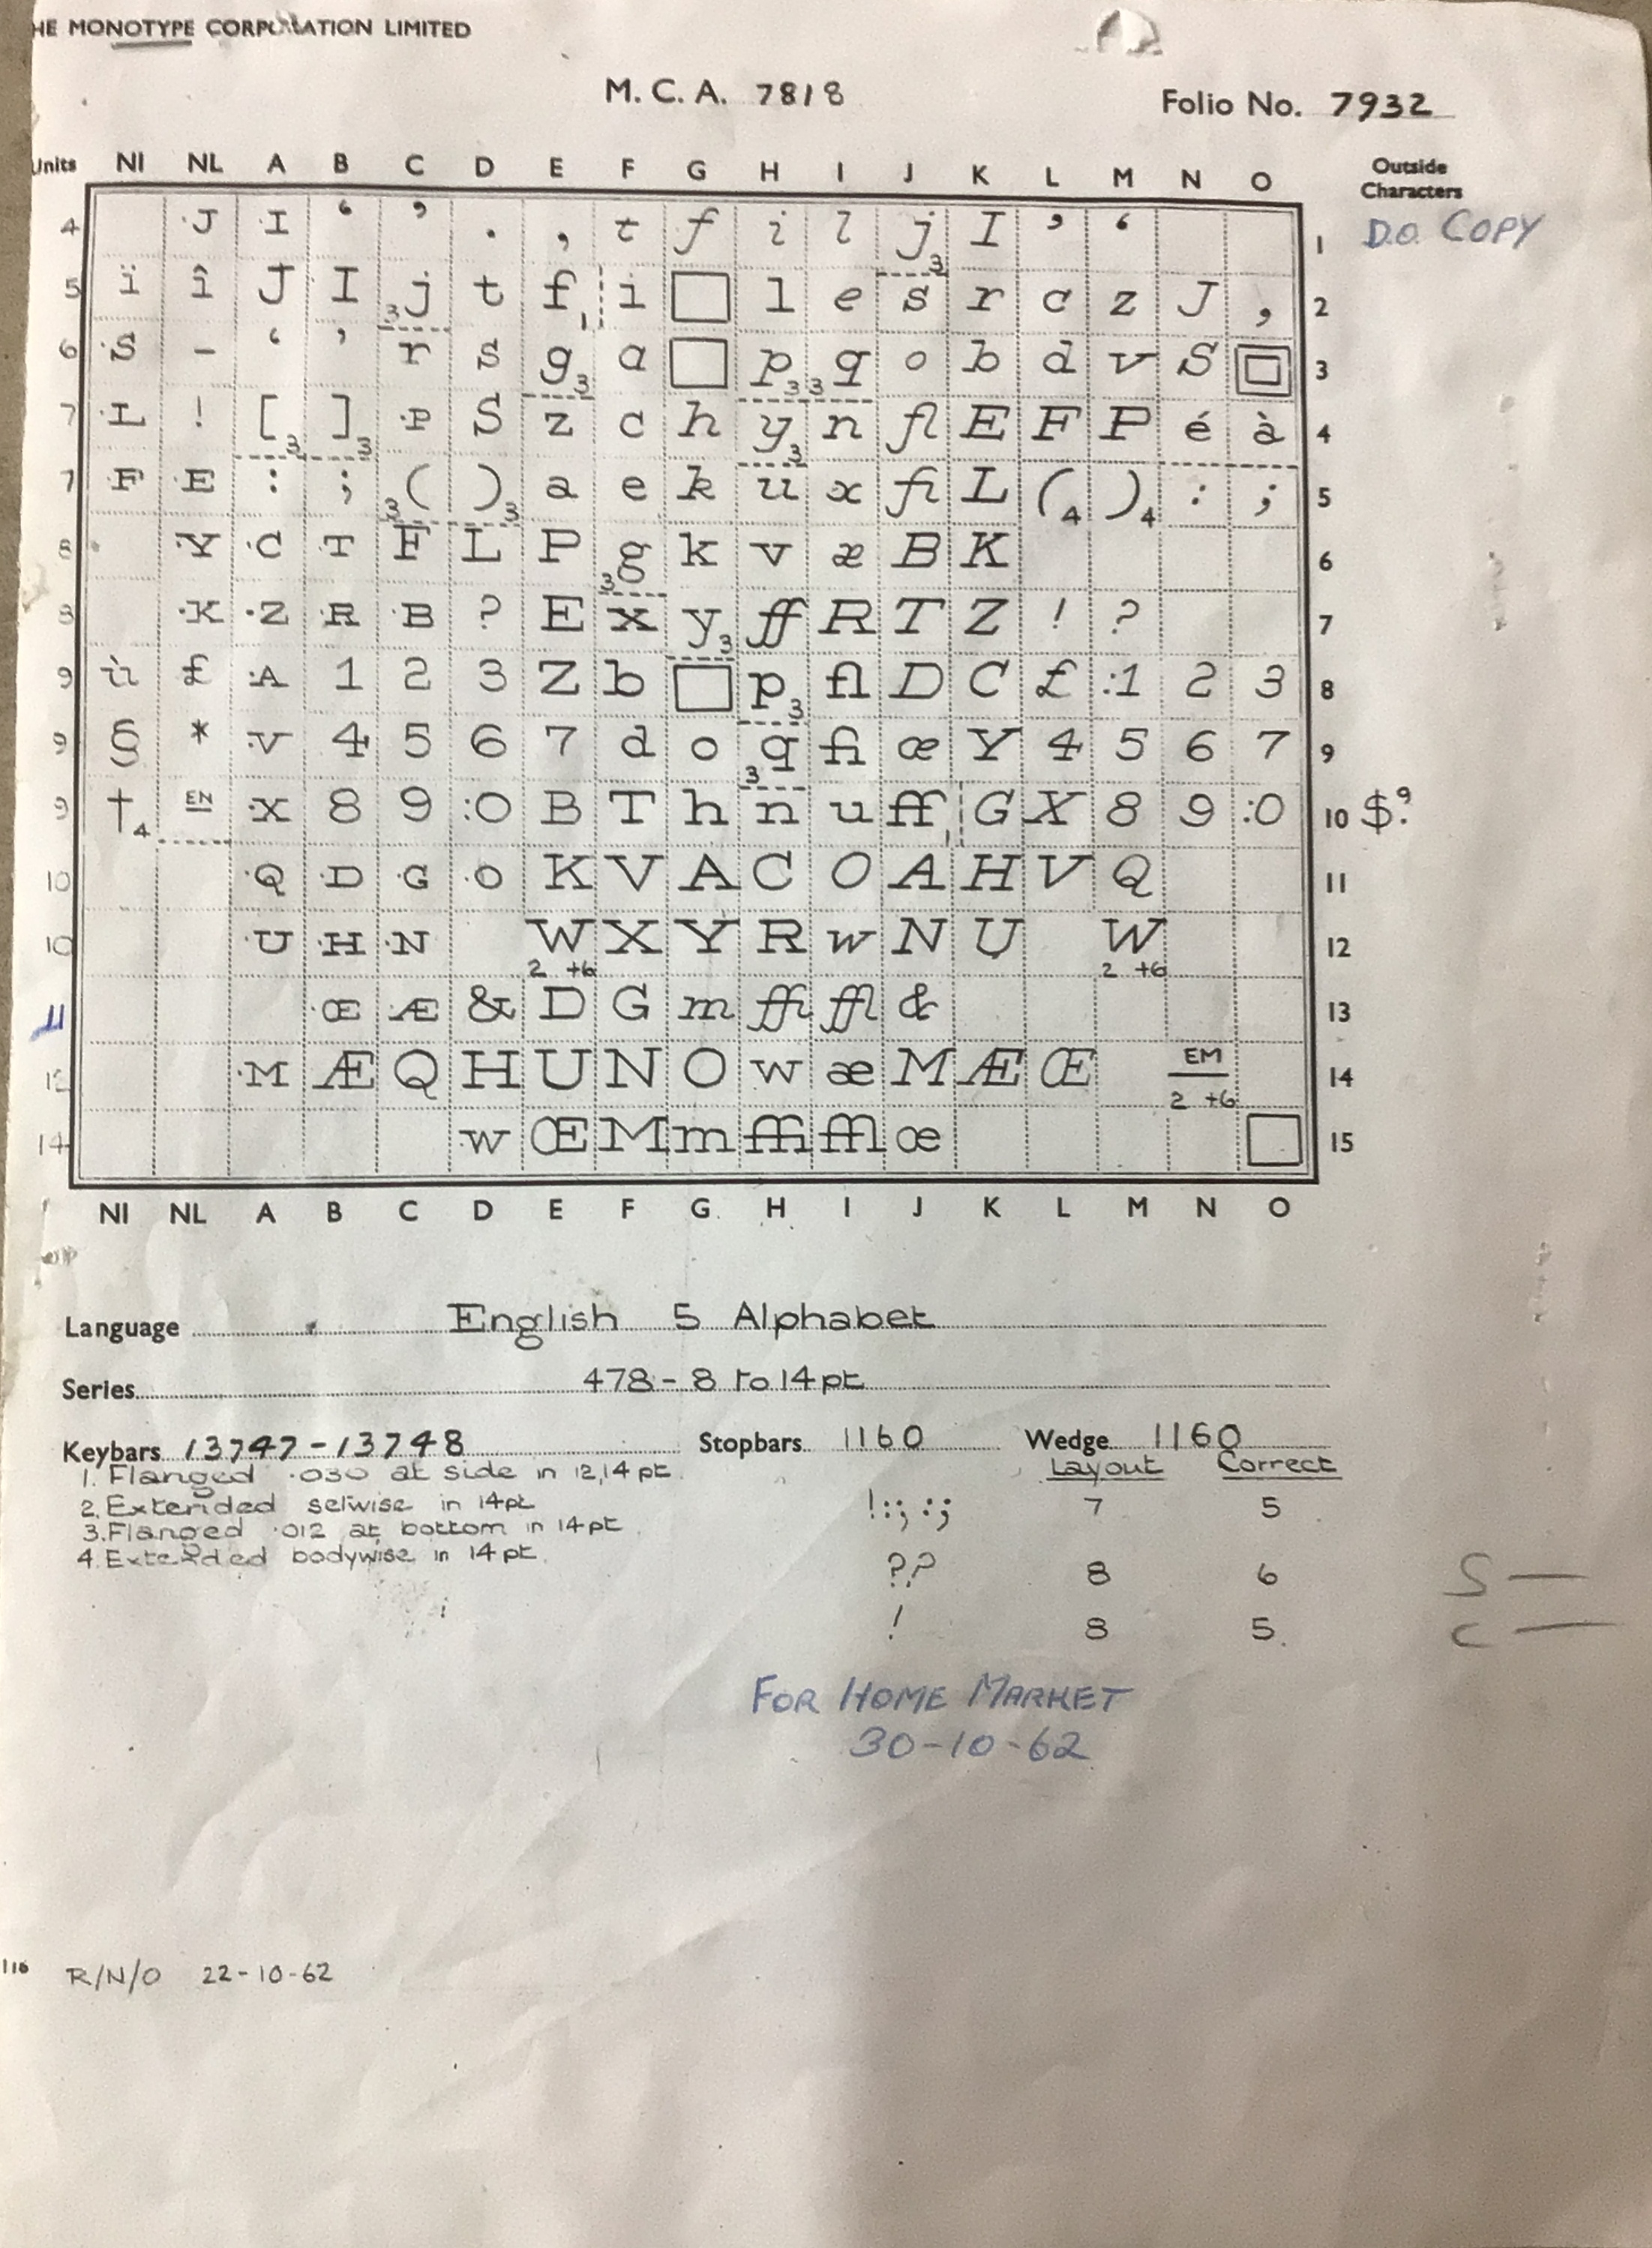 HE MONOTYPE CORPORATION LIMITED
M. C. A. 7818
Folio No. 7932
Units NI NL A B C D E F G H I J K L M N O Outside Characters
4 ·J ·I ‘ ’ . , t f i l j 3 I ’ ‘ 1 D.O. COPY
5 ï î J I 3 j t f 1 i □ l e s r c z J , 2
6 ·S - ‘ ’ r s g 3 a □ p 3 3 q o b d v S 3
7 ·L ! [ 3 ] 3 ·P S z c h y 3 n fl E F P é à 4
7 ·F ·E : ; 3 ( ) 3 a e k u x fi L ( 4 ) 4 : ; 5
8 ·Y ·C ·T F L P 3 g k v æ B K 6
8 ·K ·Z ·R ·B ? E x y 3 ff R T Z ! ? 7
9 ù £ ·A 1 2 3 Z b □ p 3 fl D C £ :1 2 3 8
9 § * ·V 4 5 6 7 d o 3 q fi œ Y 4 5 6 7 9
9 † 4 EN ·X 8 9 :0 B T h n u ff 1 G X 8 9 :0 10 $9.
10 ·Q ·D ·G ·O K V A C O A H V Q 11
10 ·U ·H ·N W 2 +6 X Y R w N U W 2 +6 12
11 ·Œ ·Æ & D G m ffi ffl & 13
12 ·M Æ Q H U N O w æ M Æ Œ EM 2 +6 14
14 w Œ M m ffi ffl œ □ 15
NI NL A B C D E F G H I J K L M N O
Language English 5 Alphabet
Series 478 - 8 to 14 pt
Keybars 13747-13748 Stopbars 1160 Wedge 1160
1. Flanged ·030 at side in 12,14 pt.
2. Extended setwise in 14pt
3. Flanged ·012 at bottom in 14 pt
4. Extended bodywise in 14 pt.
Layout Correct
! : ; : ; 7 5
? ? 8 6
! 8 5.
FOR HOME MARKET
30-10-62
116 R/N/O 22-10-62